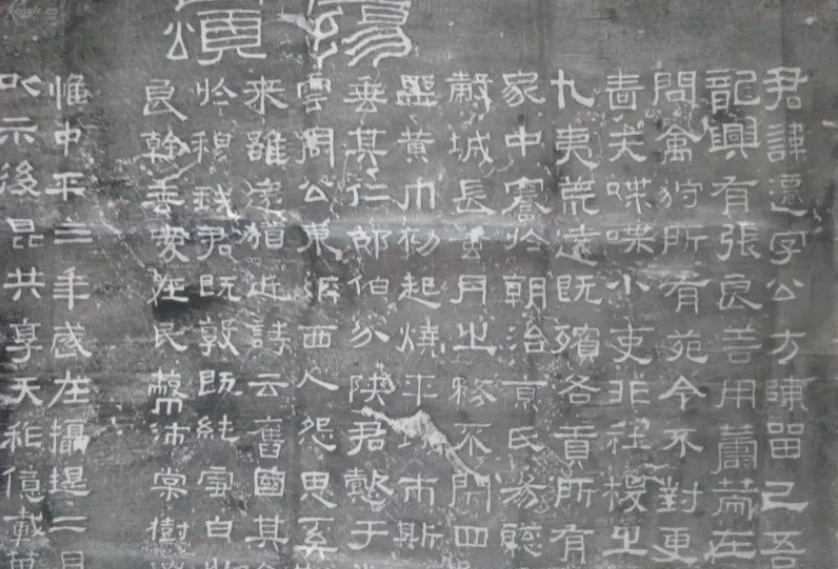 蕩
頌
君諱遷字公方陳留己吾
龍興有張良善用籌策在
問禽狩所有苑令不對更
嗇夫喋喋小吏非社稷之
九夷荒遠既殯各貢所有
家中謇於朝治京氏易聰
穀城長蠶月之務不閉四
黃巾初起燒平城市斯
垂其仁邵伯分陝君懿于
雲周公東征西人怨思奚
來雖遠猶近詩云舊國其
於穆我君既敦既純雪白
良幹垂愛在民蔽沛棠樹
惟中平三年歲在攝提二月
以示後昆共享天祚億載萬